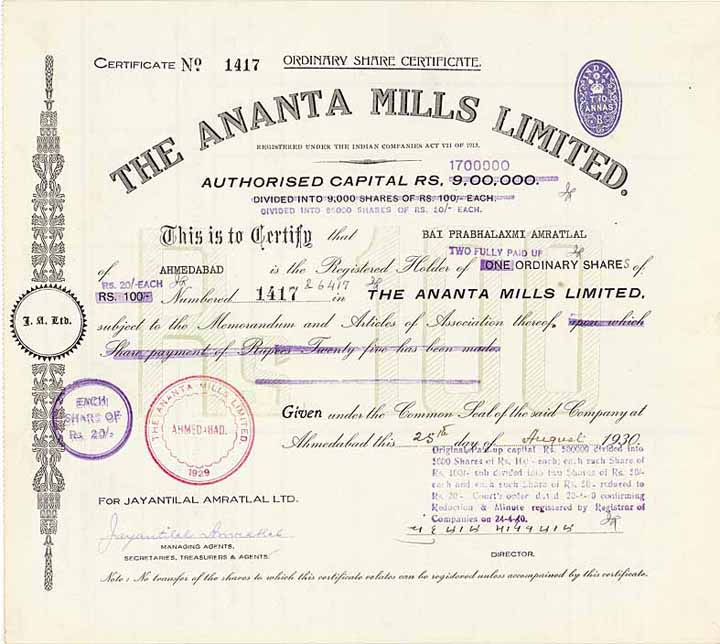 CERTIFICATE Nº 1417 ORDINARY SHARE CERTIFICATE.
INDIA
TWO
ANNAS
B
THE ANANTA MILLS LIMITED.
REGISTERED UNDER THE INDIAN COMPANIES ACT VII OF 1913.
1700000
AUTHORISED CAPITAL RS. 9,00,000.
DIVIDED INTO 9,000 SHARES OF RS. 100/- EACH.
DIVIDED INTO 85000 SHARES OF RS. 20/- EACH.
This is to Certify that BAI PRABHALAXMI AMRATLAL
TWO FULLY PAID UP
of AHMEDABAD is the Registered Holder of ONE ORDINARY SHARES of
RS. 20/-EACH
RS. 100/- Numbered 1417 & 6417 in THE ANANTA MILLS LIMITED.
subject to the Memorandum and Articles of Association thereof. upon which
Share payment of Rupees Twenty five has been made
Rs 100
J. A. Ltd.
EACH
SHARE OF
RS. 20/-
THE ANANTA MILLS LIMITED.
AHMEDABAD.
1929
Given under the Common Seal of the said Company at
Ahmedabad this 25th day of August 1930.
Original Paid-up capital Rs. 500000 divided into
Shares of Rs. 100/- each; each such Share of
Rs. 100/- sub divided into two Shares of Rs. 50/-
each and each such Share of Rs. 50/- reduced to
Rs 20/- Court's order dated confirming
Reduction & Minute registered by Registrar of
Companies on 24-4-40.
FOR JAYANTILAL AMRATLAL LTD.
Jayantilal Amratlal
MANAGING AGENTS,
SECRETARIES, TREASURERS & AGENTS.
DIRECTOR.
Note: No transfer of the shares to which this certificate relates can be registered unless accompained by this certificate.